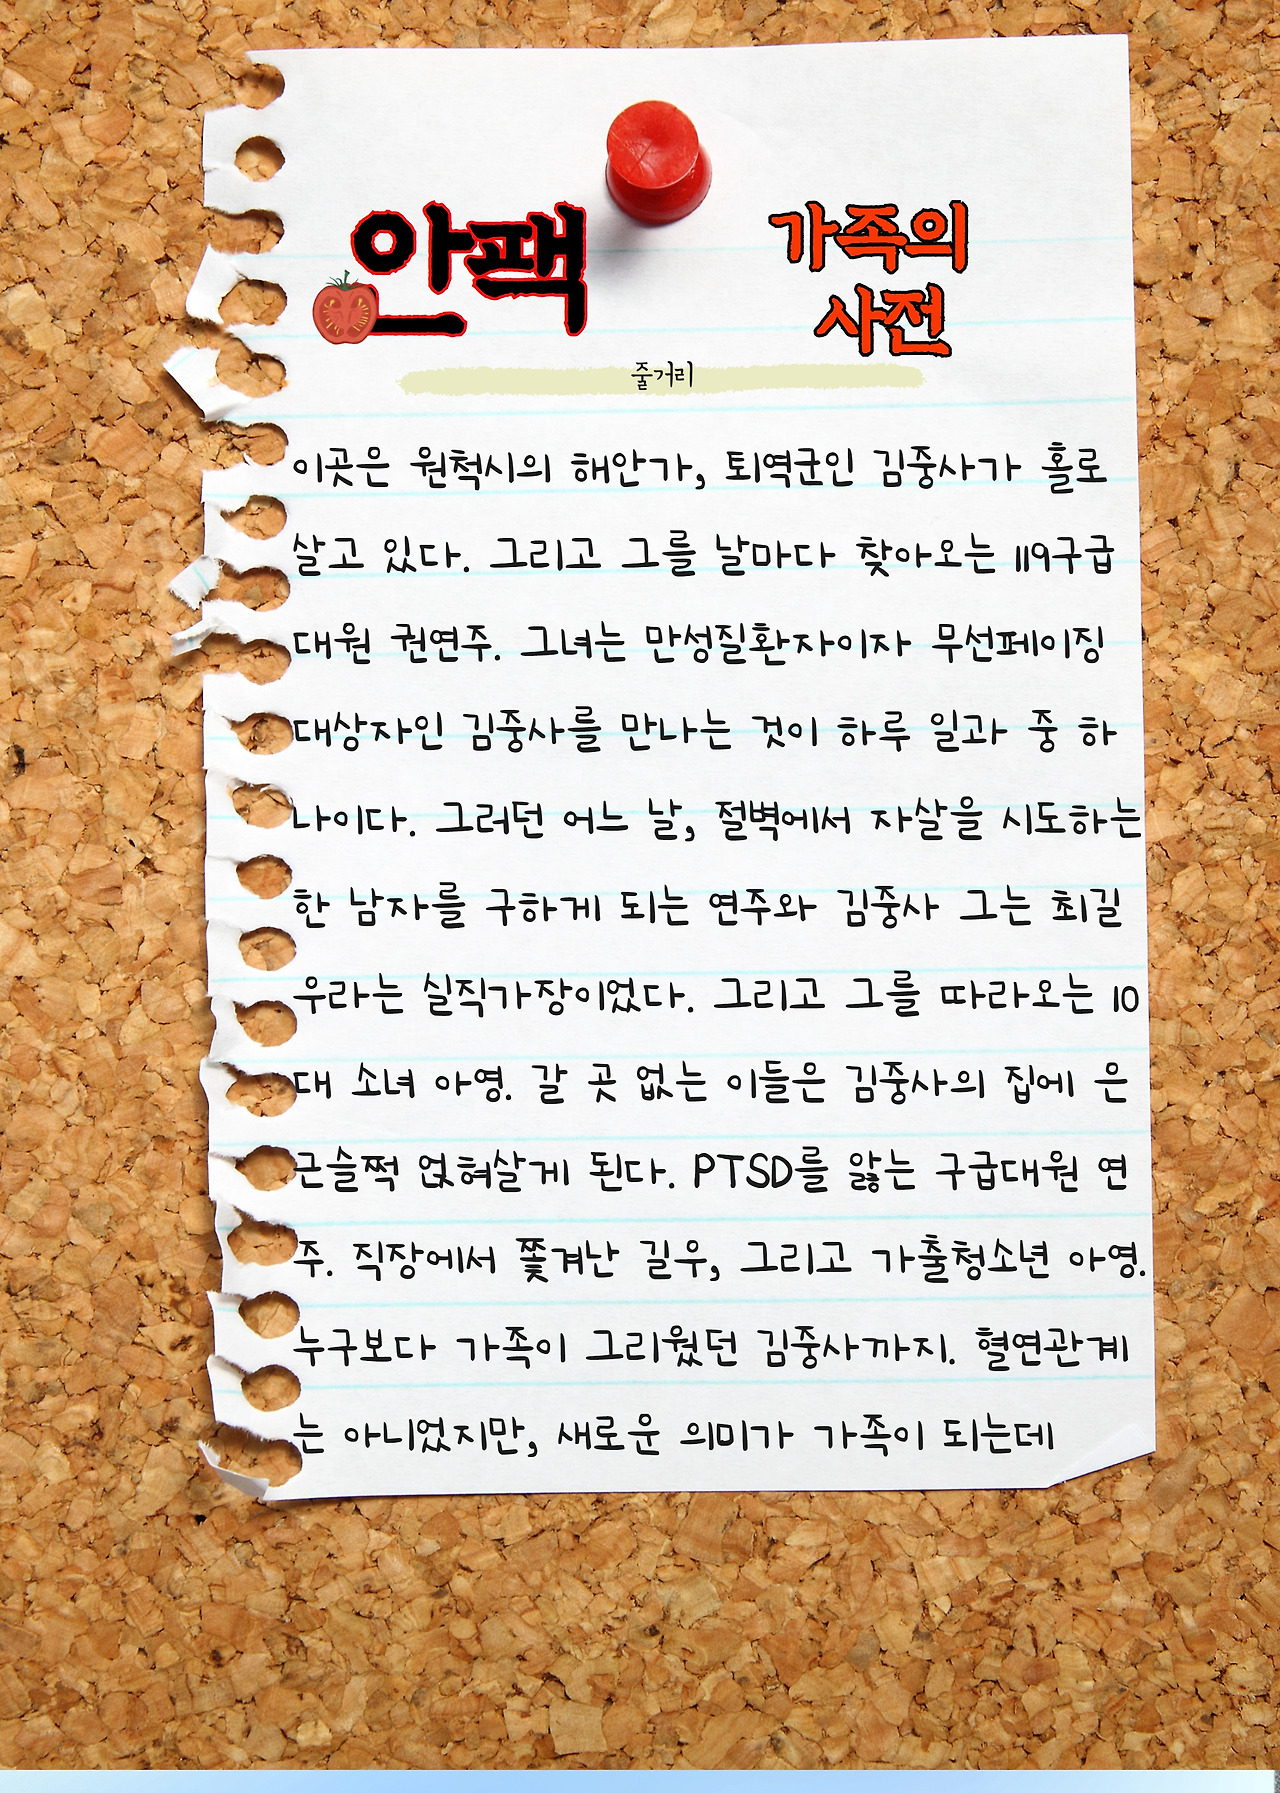 안팩
가족의
사전
줄거리
이곳은 원척시의 해안가, 퇴역군인 김중사가 홀로
살고 있다. 그리고 그를 날마다 찾아오는 119구급
대원 권연주. 그녀는 만성질환자이자 무선페이징
대상자인 김중사를 만나는 것이 하루 일과 중 하
나이다. 그러던 어느 날, 절벽에서 자살을 시도하는
한 남자를 구하게 되는 연주와 김중사 그는 최길
우라는 실직가장이었다. 그리고 그를 따라오는 10
대 소녀 아영. 갈 곳 없는 이들은 김중사의 집에 은
근슬쩍 얹혀살게 된다. PTSD를 앓는 구급대원 연
주. 직장에서 쫓겨난 길우, 그리고 가출청소년 아영.
누구보다 가족이 그리웠던 김중사까지. 혈연관계
는 아니었지만, 새로운 의미가 가족이 되는데